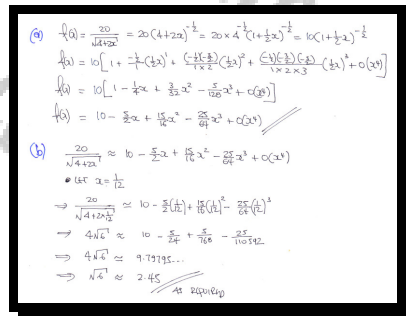 (a) f(x) = 20/√(4+2x) = 20(4+2x)^(-1/2) = 20×4^(-1/2)(1+½x)^(-1/2) = 10(1+½x)^(-1/2)
f(x) = 10[1 + (-½)/1 (½x)¹ + (-½)(-3/2)/(1×2) (½x)² + (-½)(-3/2)(-5/2)/(1×2×3) (½x)³ + O(x⁴)]
f(x) = 10[1 - ¼x + 3/32 x² - 5/128 x³ + O(x⁴)]
f(x) = 10 - 5/2 x + 15/16 x² - 25/64 x³ + O(x⁴)
(b) 20/√(4+2x) ≈ 10 - 5/2 x + 15/16 x² - 25/64 x³ + O(x⁴)
• LET x = 1/12
⇒ 20/√(4+2×1/12) ≈ 10 - 5/2(1/12) + 15/16(1/12)² - 25/64(1/12)³
⇒ 4√6 ≈ 10 - 5/24 + 5/768 - 25/110592
⇒ 4√6 ≈ 9.79795...
⇒ √6 ≈ 2.45
AS REQUIRED